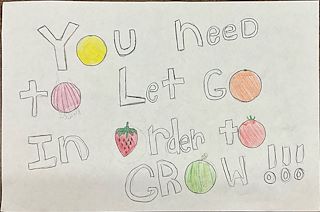 You need
to Let Go
In Order to
GROW !!!